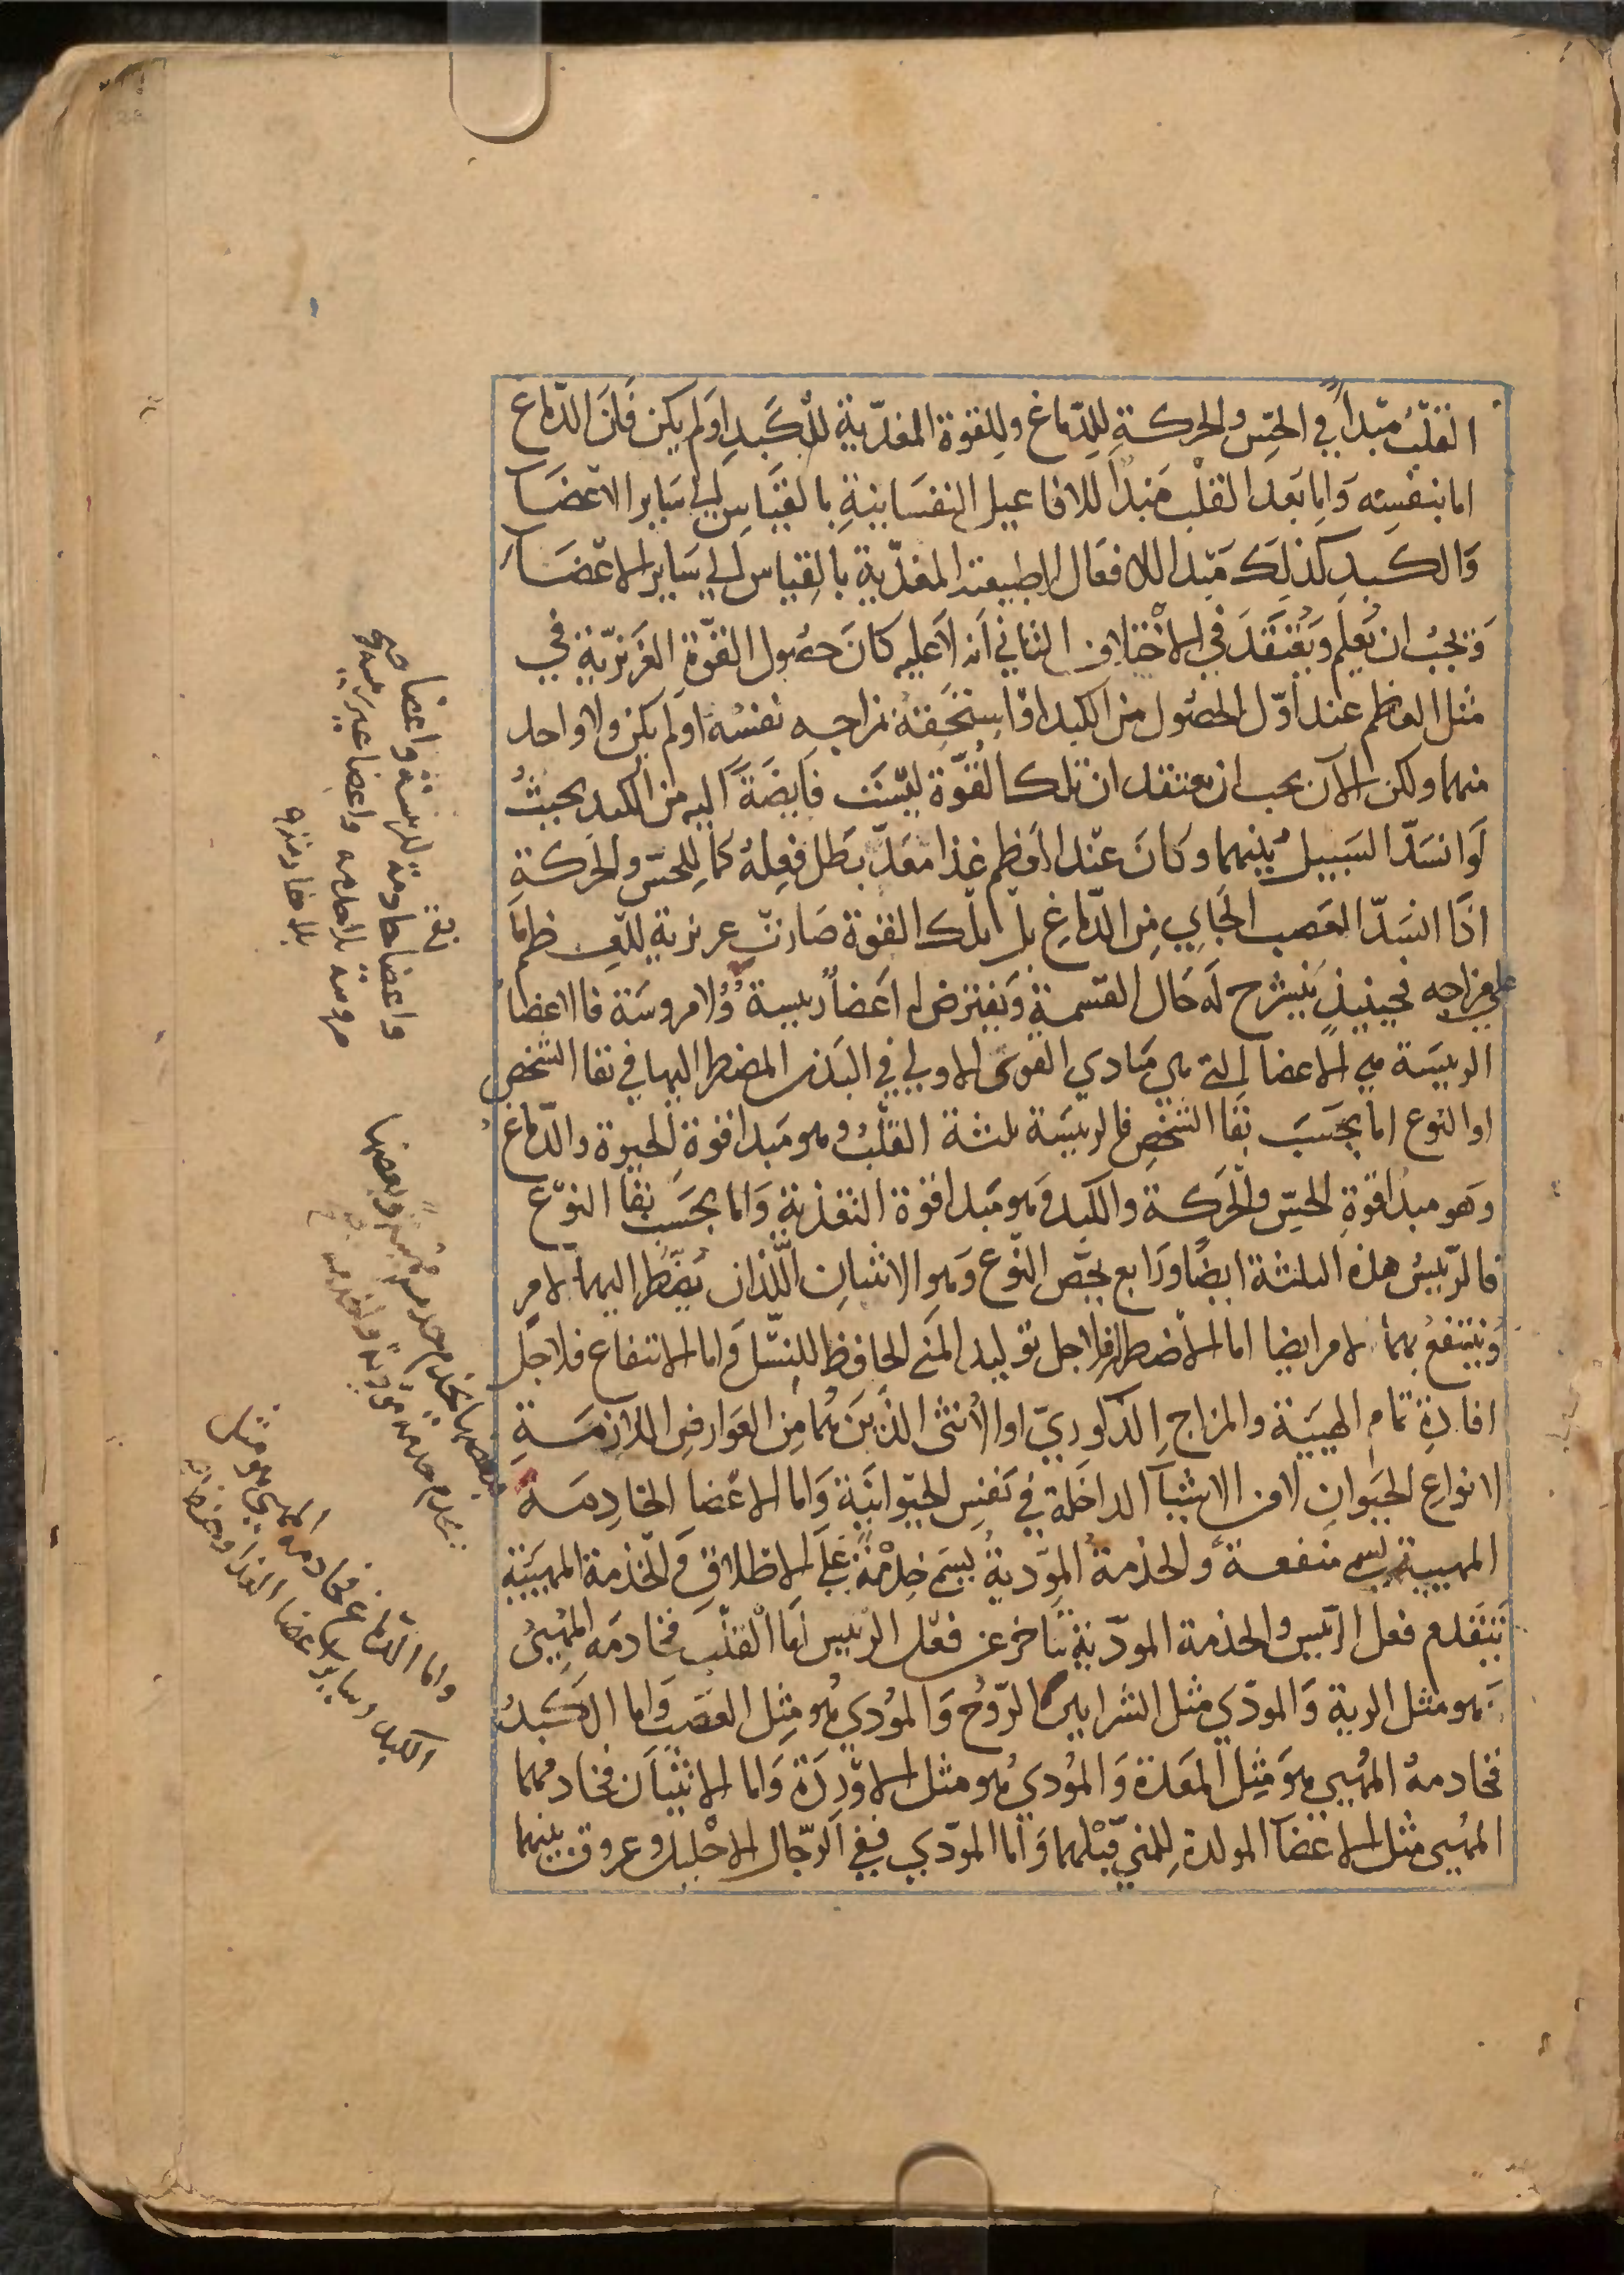 القلب مبدأ في الحس والحركة للدماغ وللقوة المغذية للكبد او لم يكن فان الدماغ
اما بنفسه واما بعد القلب مبدأ للافاعيل النفسانية بالقياس الي ساير الاعضا
والكبد كذلك مبدا للافعال الطبيعية المغذية بالقياس الي ساير الاعضا
ويجب ان يعلم ويعتقد في الاختلاف الثاني انه لا عليه كان حصول القوة الغريزية في
مثل العظم عند اول الحصول من الكبد او استحقه بمزاجه نفسه او لم يكن ولا واحد
منهما ولكن الآن يجب ان يعتقد ان تلك القوة ليست فايضة اليه من الكبد بحيث
لو انسد السبيل بينهما وكان عند العظم غذا معد بطل فعله كما للحس والحركة
اذا انسد العصب الجاي من الدماغ بل تلك القوة صارت غريزية للعظم
علي مزاجه فحينيذ ينشرح له حال القسمة ويفترض له اعضا رييسة ولا مروسة فالاعضا
الرييسة هي الاعضا التي هي مبادي القوى الاولي في البدن المضطر اليها في بقا الشخص
او النوع اما بحسب بقا الشخص فالرييسة ثلثة القلب وهو مبدا قوة الحيوة والدماغ
وهو مبدا قوة الحس والحركة والكبد وهو مبدا قوة التغذية واما بحسب بقا النوع
فالرييس هذه الثلثة ايضا ورابع يخص النوع وهو الانثيان اللذان يضطر اليهما لامر
وينتفع بهما لامر ايضا اما الاضطرار فلاجل توليد المني الحافظ للنسل واما الانتفاع فلاجل
افادة تمام الهيية والمزاج الذكوري او الانثى الذين هما من العوارض اللازمة
لانواع الحيوان لا من الاشيا الداخلة في نفس الحيوانية واما الاعضا الخادمة
المهيية يسمي منفعة والخدمة المودية يسمي خدمة علي الاطلاق والخدمة المهيية
تتقدم فعل الرييس والخدمة المودية تتاخر عن فعل الرييس اما القلب فخادمه المهيئ
هو مثل الرية والمودي مثل الشرايين الروح والمودي هو مثل العصب واما الكبد
فخادمه المهيي هو مثل المعدة والمودي هو مثل الاوردة واما الانثيان فخادمهما
المهيي مثل الاعضا المولدة للمني قبلهما واما المودي ففي الرجال الاحليل وعروق بينهما
واعضا خادمة للرييسة واعضا
مروسة بلا خدمة واعضا غير رييسة و
واما الدماغ فخادمه المهيي هو مثل
الكبد وساير اعضا الغذا